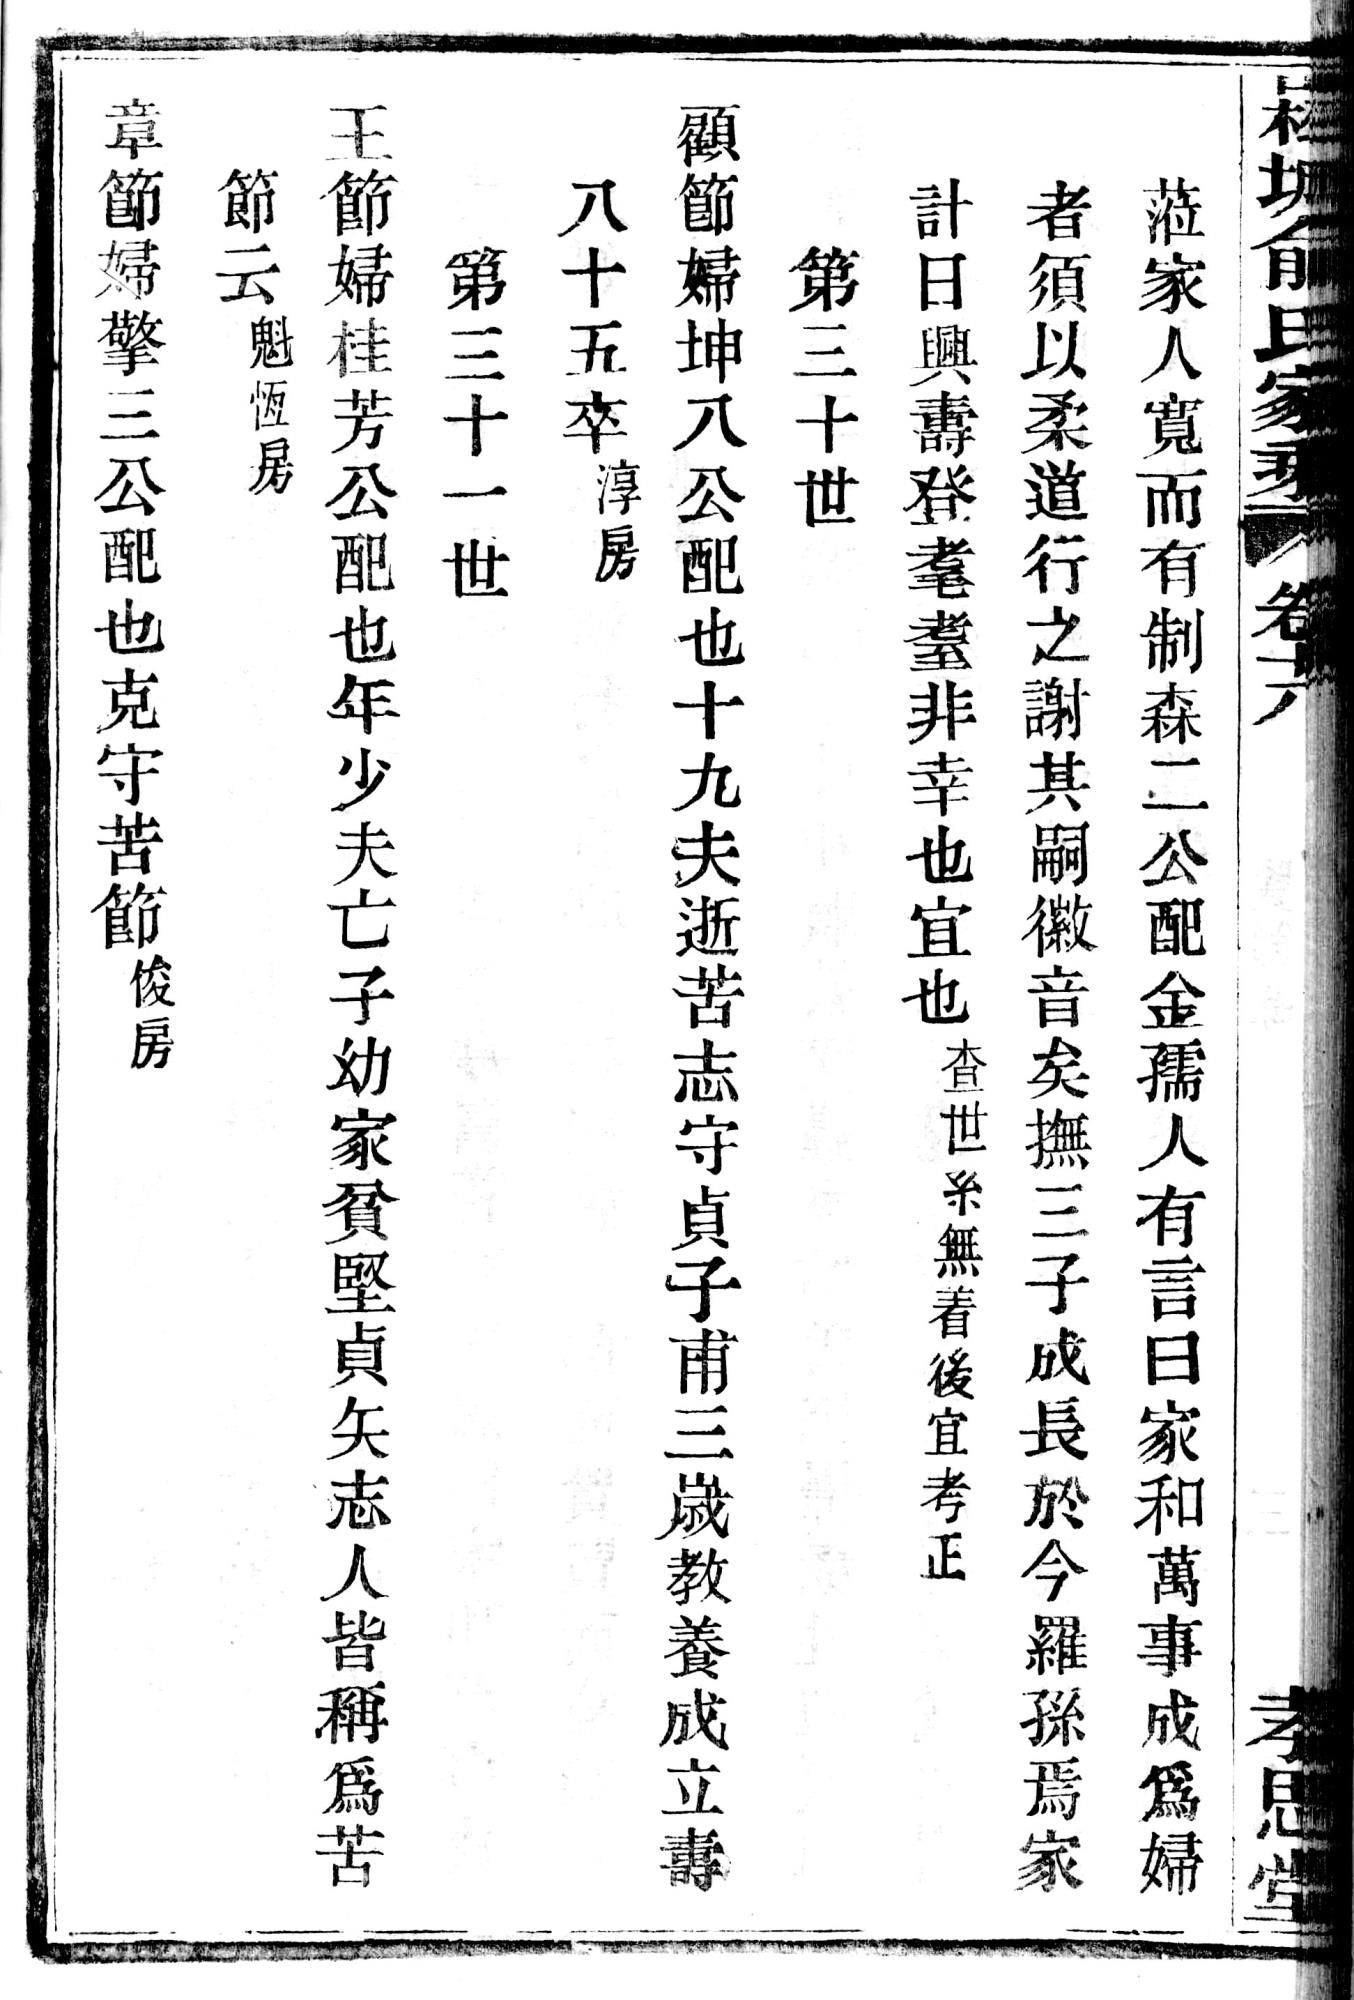 俞氏家乘 卷六 孝思堂
蒞家人寬而有制森二公配金孺人有言曰家和萬事成爲婦
者須以柔道行之謝其嗣徽音矣撫三子成長於今羅孫焉家
計日興壽登耄耋非幸也宜也查世系無着後宜考正
第三十世
顧節婦坤八公配也十九夫逝苦志守貞子甫三歲教養成立壽
八十五卒淳房
第三十一世
王節婦桂芳公配也年少夫亡子幼家貧堅貞矢志人皆稱爲苦
節云魁恆房
章節婦擎三公配也克守苦節俊房